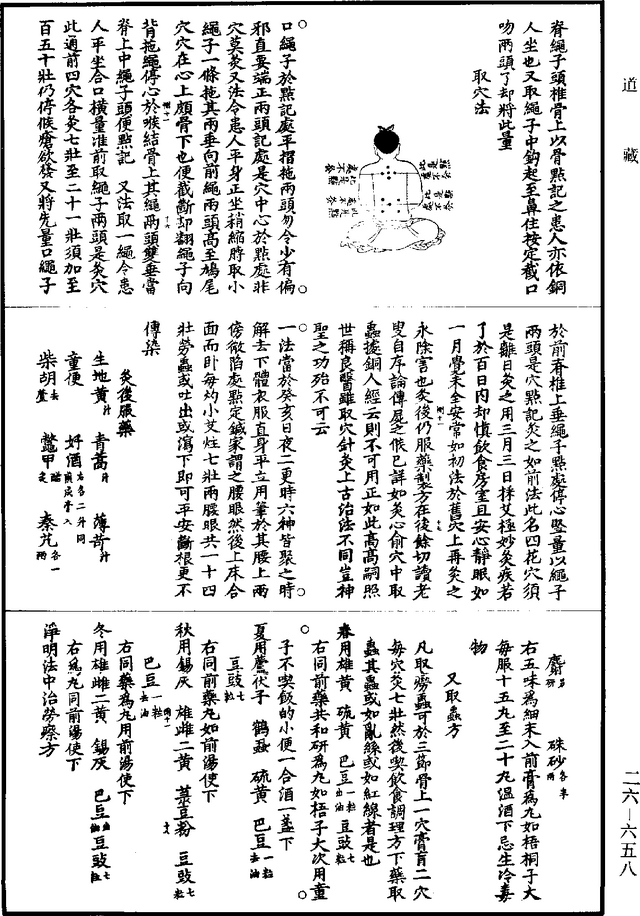 道藏
脊繩子頭椎骨上以骨點記之患人亦依銅
人坐也又取繩子中鈎起至鼻住按定截口
吻兩頭了却將此量
取穴法
口繩子於點記處平摺拖兩頭勿令少有偏
邪直要端正兩頭記處是穴中心於點處非
穴莫灸又法令患人平身正坐稍縮膊取小
繩子一條拖其兩垂向前繩兩頭高至鳩尾
穴穴在心上頗骨下也便截斷却翻繩子向
背拖繩停心於喉結骨上其繩兩頭雙垂當
脊上中繩子頭便點記 又法取一繩令患
人平坐合口橫量准前取繩子兩頭是灸穴
此通前四穴各灸七壯至二十一壯須加至
百五十壯仍停候瘡欲發又將先量口繩子
於前脊椎上垂繩子點處停心豎量以繩子
兩頭是穴點記灸之如前法此名四花穴須
是離日灸之用三月三日採艾極妙灸疾若
了於百日內却慎飲食房室且安心靜眠如
一月覺未全安常如初法於舊穴上再灸之
永除害也灸後仍服藥製方在後餘切讀老
叟自序論傳屍之候已詳如灸心俞穴中取
蟲據銅人經云則不可用正如此高高嗣照
世稱良醫雖取穴針灸上古治法不同豈神
聖之功殆不可云
一法當於癸亥日夜二更時六神皆聚之時
解去下體衣服直身平立用筆於其腰上兩
傍微陷處點定鍼家謂之腰眼然後上床合
面而卧每灼小艾炷七壯兩腰眼共一十四
壯勞蟲或吐出或瀉下即可平安斷根更不
傳染
灸後服藥
生地黃 青蒿 薄荷
童便 好酒
柴胡 鱉甲 秦艽
麝 硃砂
右五味為細末入前膏為丸如梧桐子大
每服十五丸至二十丸溫酒下忌生冷毒
物
又取蟲方
凡取癆蟲可於三節骨上一穴膏肓二穴
每穴灸七壯然後喫飲食調理方下藥取
蟲其蟲或如亂絲或如紅線者是也
春用雄黃 硫黃 巴豆一粒去油 豆豉七粒
右同前藥共和研為丸如梧子大次用童
子不喫飯的小便一合酒一盞下
夏用蘆伏子 鶴蝨 硫黃 巴豆一粒去油
豆豉七粒
右同前藥丸如前湯使下
秋用錫灰 雄雌二黃 菉豆粉 豆豉七粒
巴豆一粒去油
右同藥為丸用前湯使下
冬用雄雌二黃 錫灰 巴豆 豆豉七粒
右為丸同前湯使下
淨明法中治勞瘵方
二六—六五八